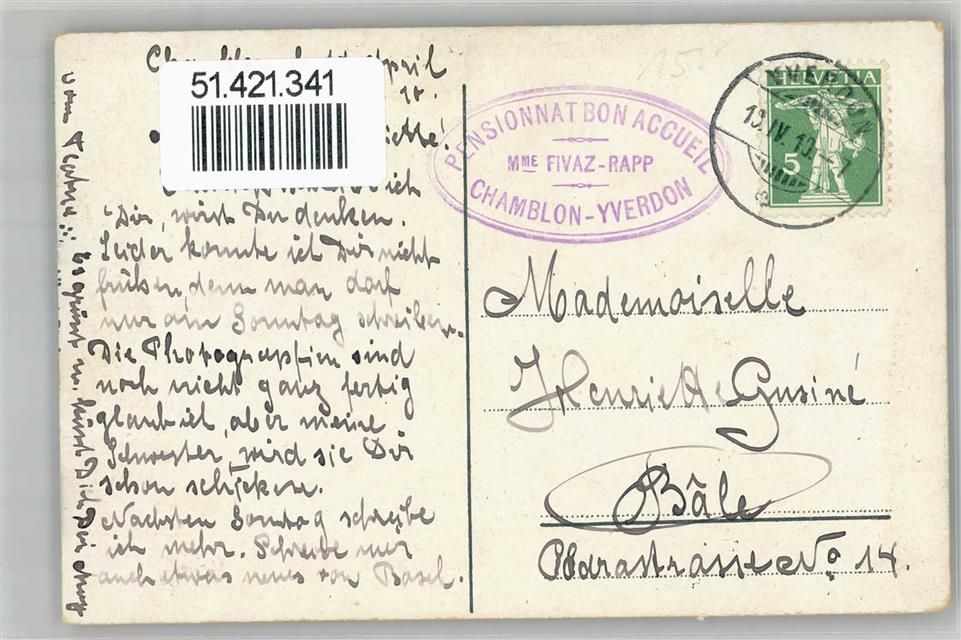 April
51.421.341
Dir, wirst Du denken.
Leider konnte ich Dir nicht
früher, denn man darf
nur am Sonntag schreiben.
Die Photographien sind
noch nicht ganz fertig
glaub ich, aber meine
Schwester, wird sie Dir
schon schicken.
Nächsten Sonntag schreibe
ich mehr. Schreibe mir
auch etwas neues von Basel.
Es grüsst u. küsst Dich
PENSIONNAT BON ACCUEIL
MME FIVAZ-RAPP
CHAMBLON-YVERDON
15.
HELVETIA
5
YVERDON
Mademoiselle
Henriette Gusiné
Bâle
No 14.